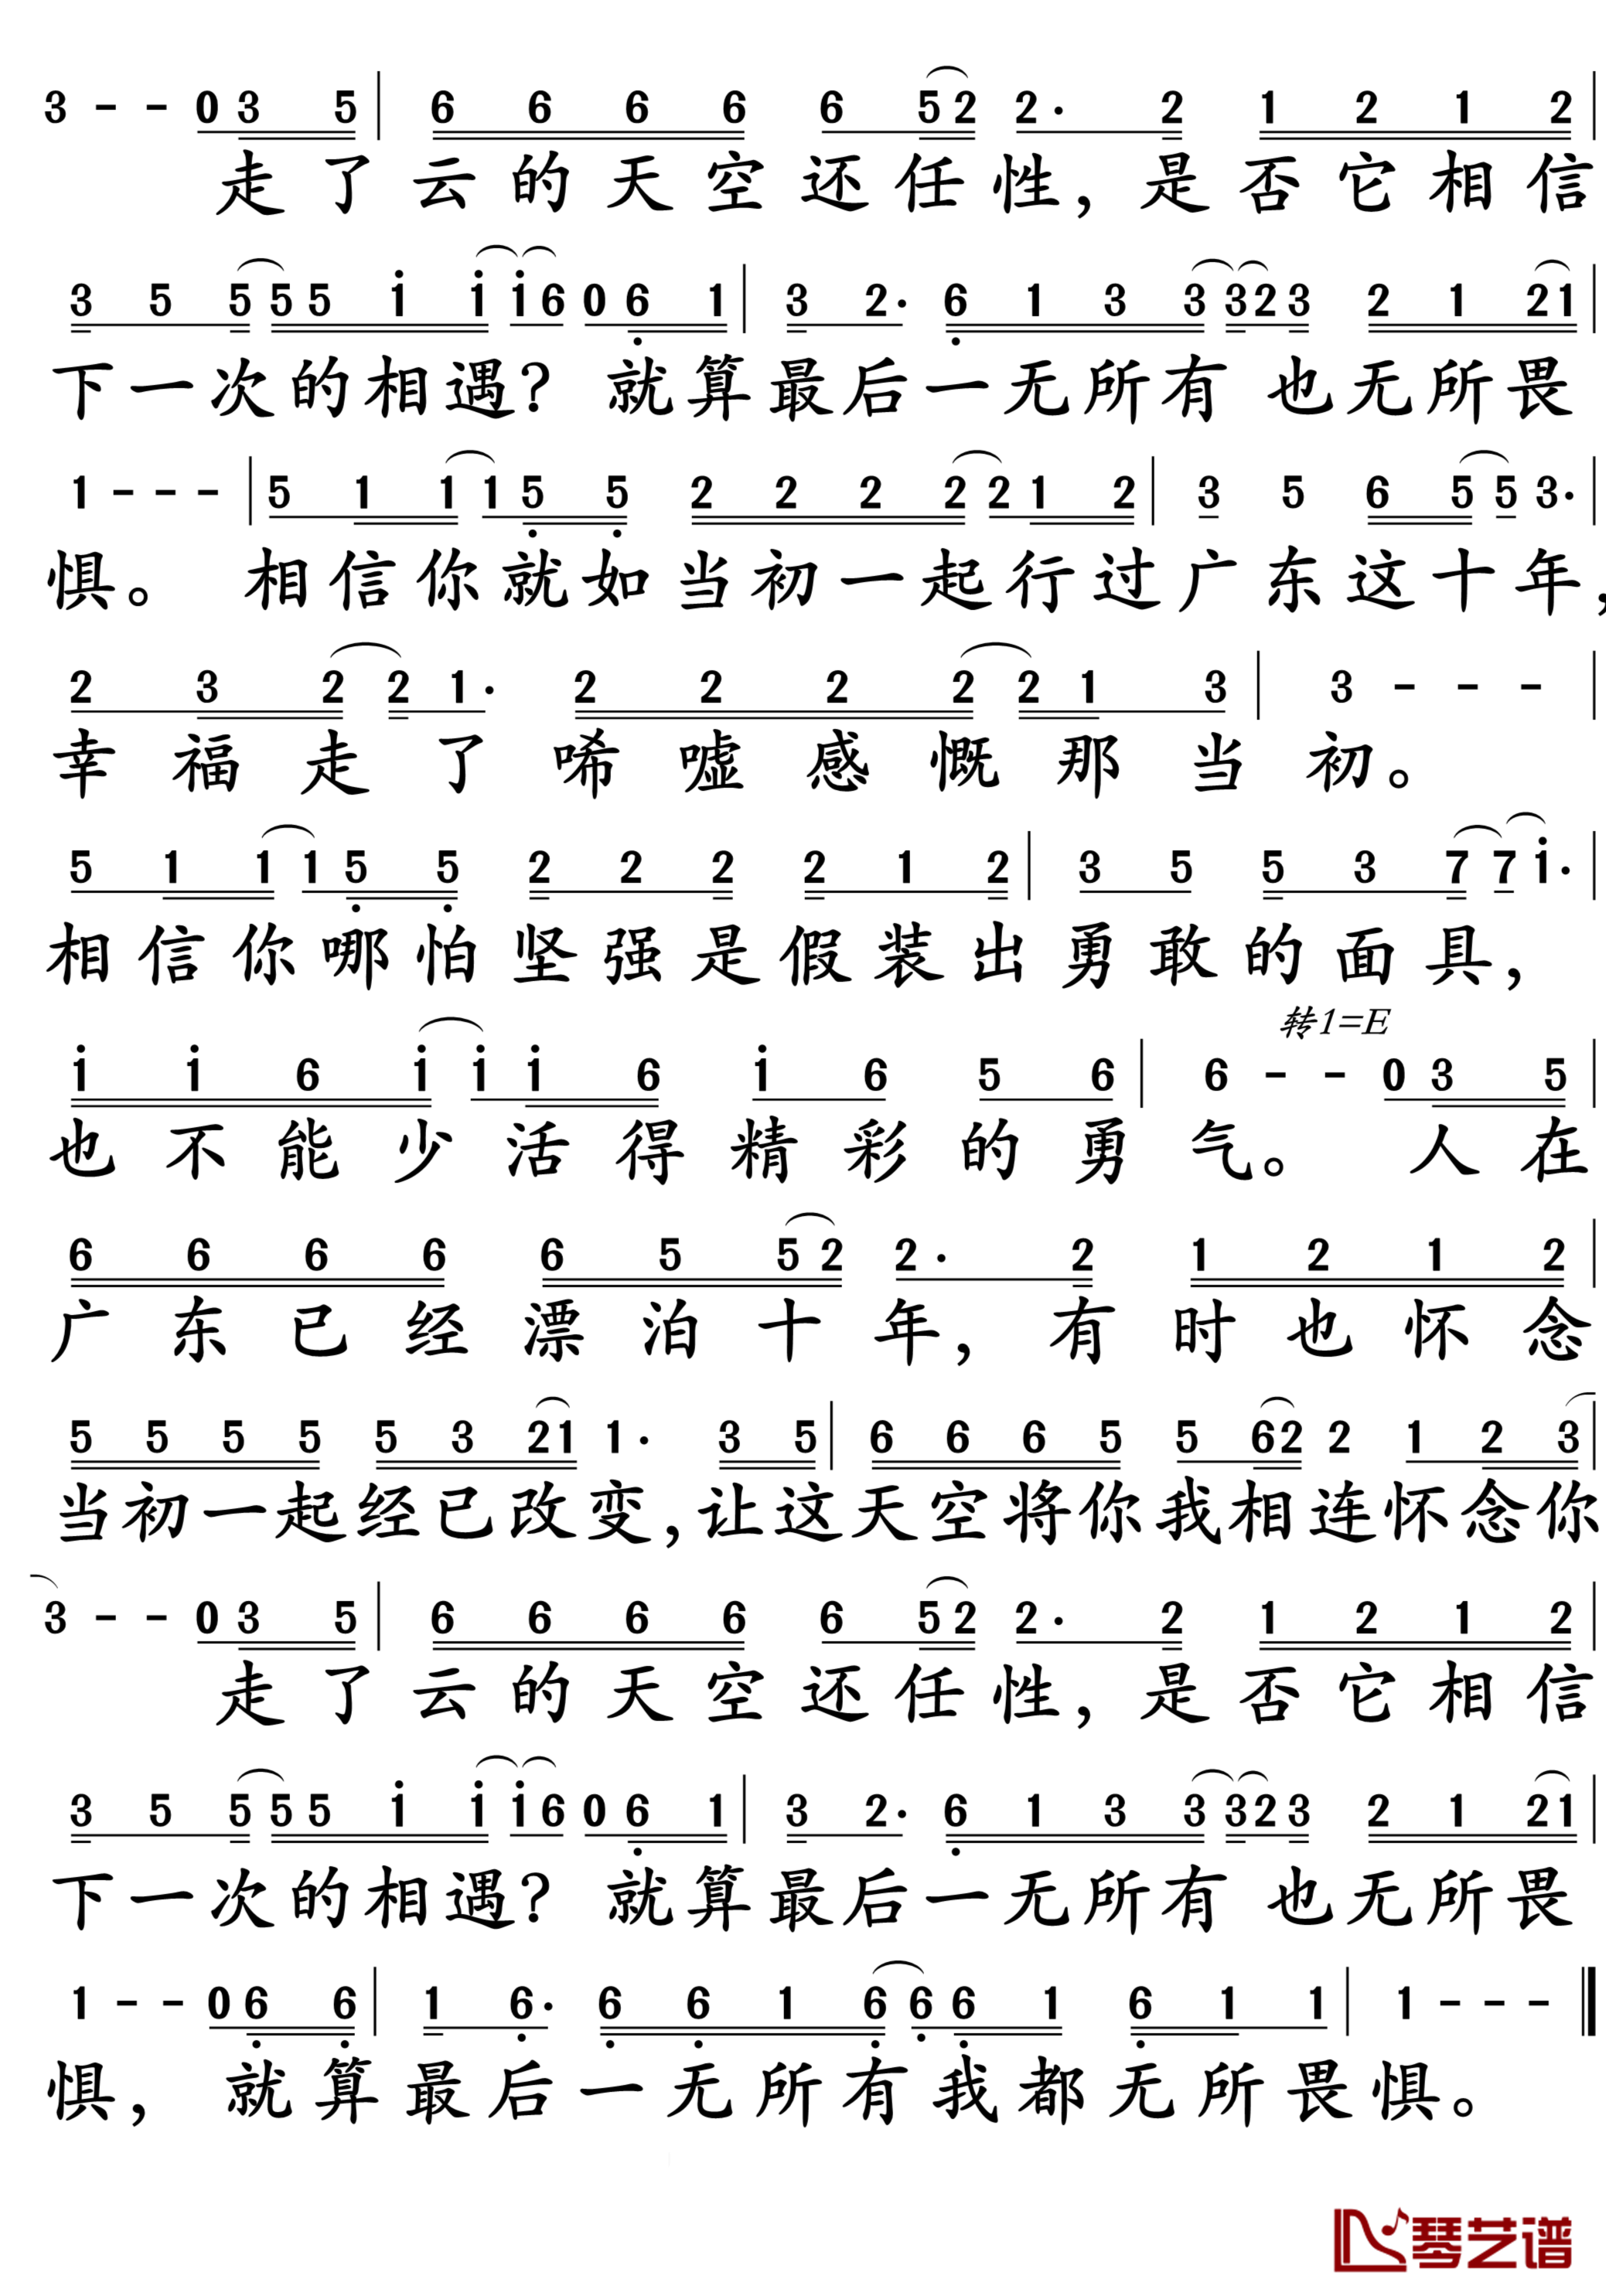 3 - - 0 3 5 | 6 6 6 6 6 5 2 2· 2 1 2 1 2 |
走了云的天空还任性，是否它相信
3 5 5 5 5 i i i 6 0 6 1 | 3 2· 6 1 3 3 3 2 3 2 1 2 1 |
下一次的相遇？就算最后一无所有 也无所畏
1 - - - | 5 1 1 1 5 5 2 2 2 2 2 1 2 | 3 5 6 5 5 3· |
惧。 相信你就如当初一起行过广东这十年，
2 3 2 2 1· 2 2 2 2 2 1 3 | 3 - - - |
幸福走了唏嘘感慨那当初。
5 1 1 1 5 5 2 2 2 2 1 2 | 3 5 5 3 7 7 i· |
相信你哪怕坚强是假装出勇敢的面具，
转1=E
i i 6 i i i 6 i 6 5 6 | 6 - - 0 3 5 |
也不能少活得精彩的勇气。 人在
6 6 6 6 6 5 5 2 2· 2 1 2 1 2 |
广东已经漂泊十年，有时也怀念
5 5 5 5 5 3 2 1 1· 3 5 | 6 6 6 5 5 6 2 2 1 2 3 |
当初一起经已改变，让这天空将你我相连怀念你
3 - - 0 3 5 | 6 6 6 6 6 5 2 2· 2 1 2 1 2 |
走了云的天空还任性，是否它相信
3 5 5 5 5 i i i 6 0 6 1 | 3 2· 6 1 3 3 3 2 3 2 1 2 1 |
下一次的相遇？就算最后一无所有 也无所畏
1 - - 0 6 6 | 1 6· 6 6 1 6 6 6 1 6 1 1 | 1 - - - ‖
惧，就算最后一无所有我都无所畏惧。
琴艺谱